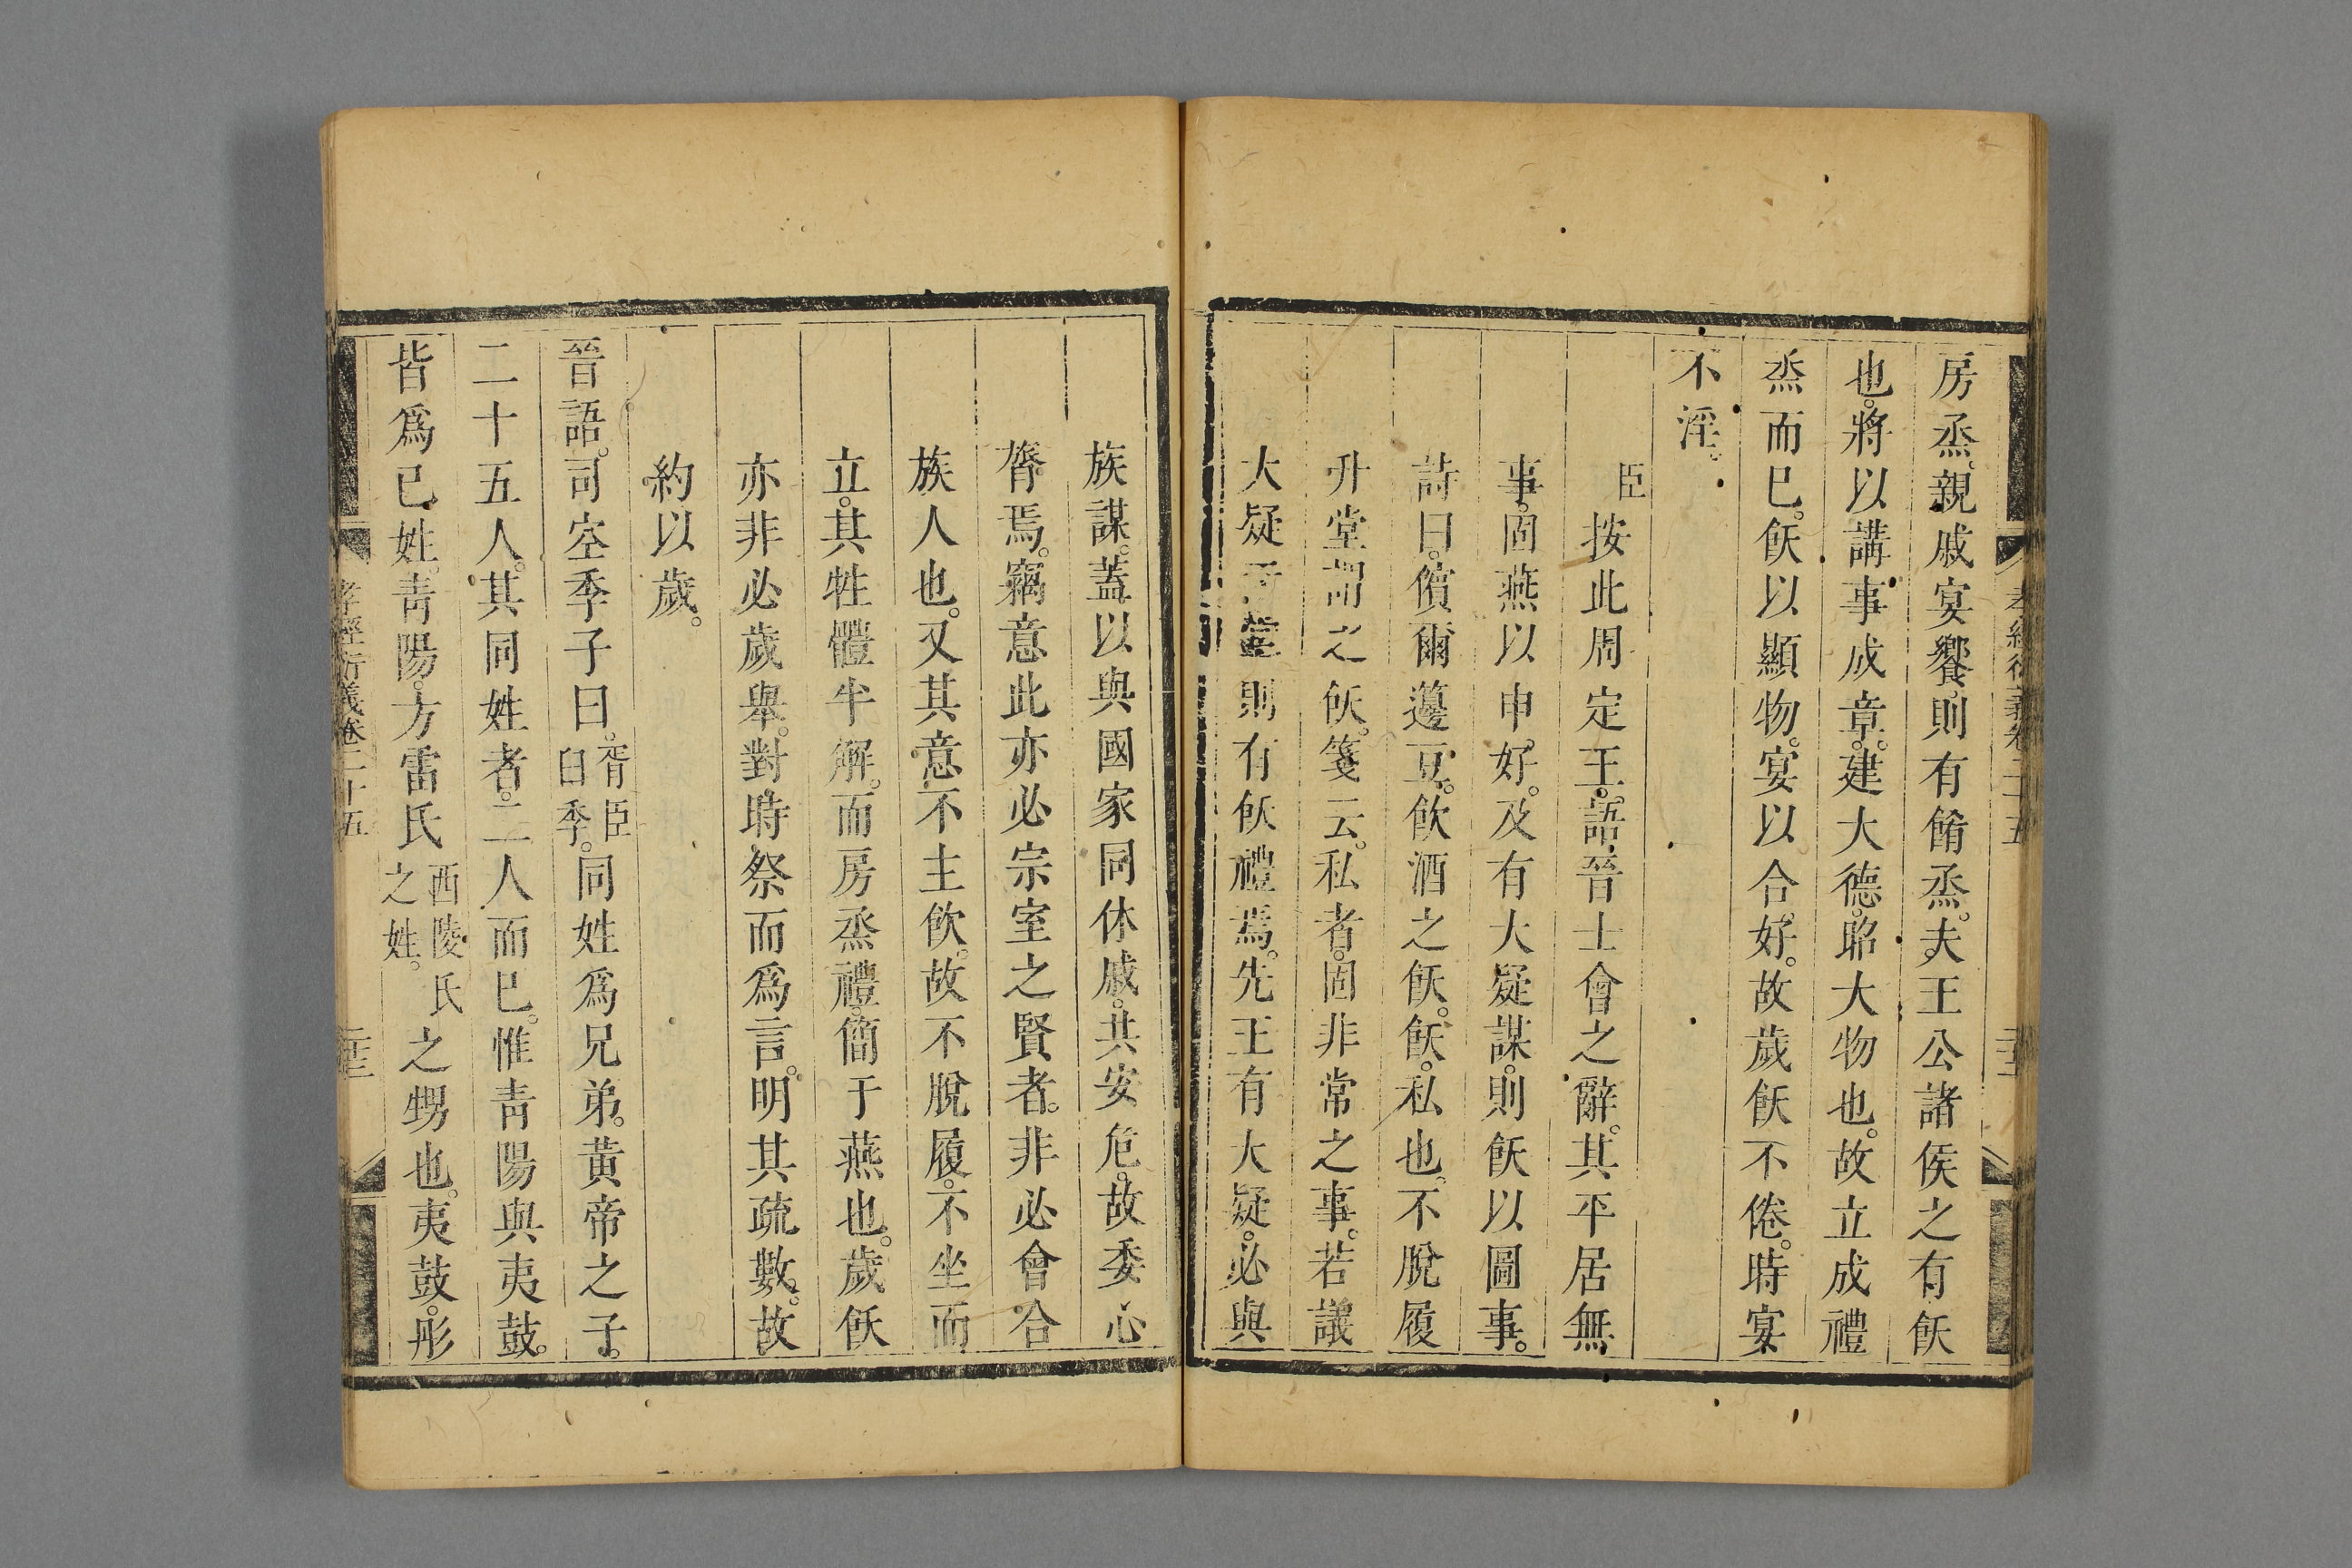 孝經衍義卷二十五
房烝。親戚宴饗。則有餚烝。夫王公諸侯之有飫
也。將以講事成章。建大德。昭大物也。故立成禮
烝而已。飫以顯物。宴以合好。故歲飫不倦。時宴
不淫。
臣按此周定王。語晉士會之辭。其平居無
事。固燕以申好。及有大疑謀。則飫以圖事。
詩曰。儐爾籩豆。飲酒之飫。飫。私也。不脫履
升堂謂之飫。箋云。私者。固非常之事。若議
大疑于堂則有飫禮焉。先王有大疑。必與
族謀。蓋以與國家同休戚。共安危。故委心
膂焉。竊意此亦必宗室之賢者。非必會合
族人也。又其意不主飲。故不脫履。不坐而
立。其牲體半解。而房烝禮。簡于燕也。歲飫
亦非必歲舉。對時祭而為言。明其疏數。故
約以歲。
晉語。司空季子曰。胥臣臼季。同姓為兄弟。黃帝之子。
二十五人。其同姓者。二人而已。惟青陽與夷鼓。
皆為己姓。青陽。方雷氏西陵氏之姓。之甥也。夷鼓。彤
孝經衍義卷二十五